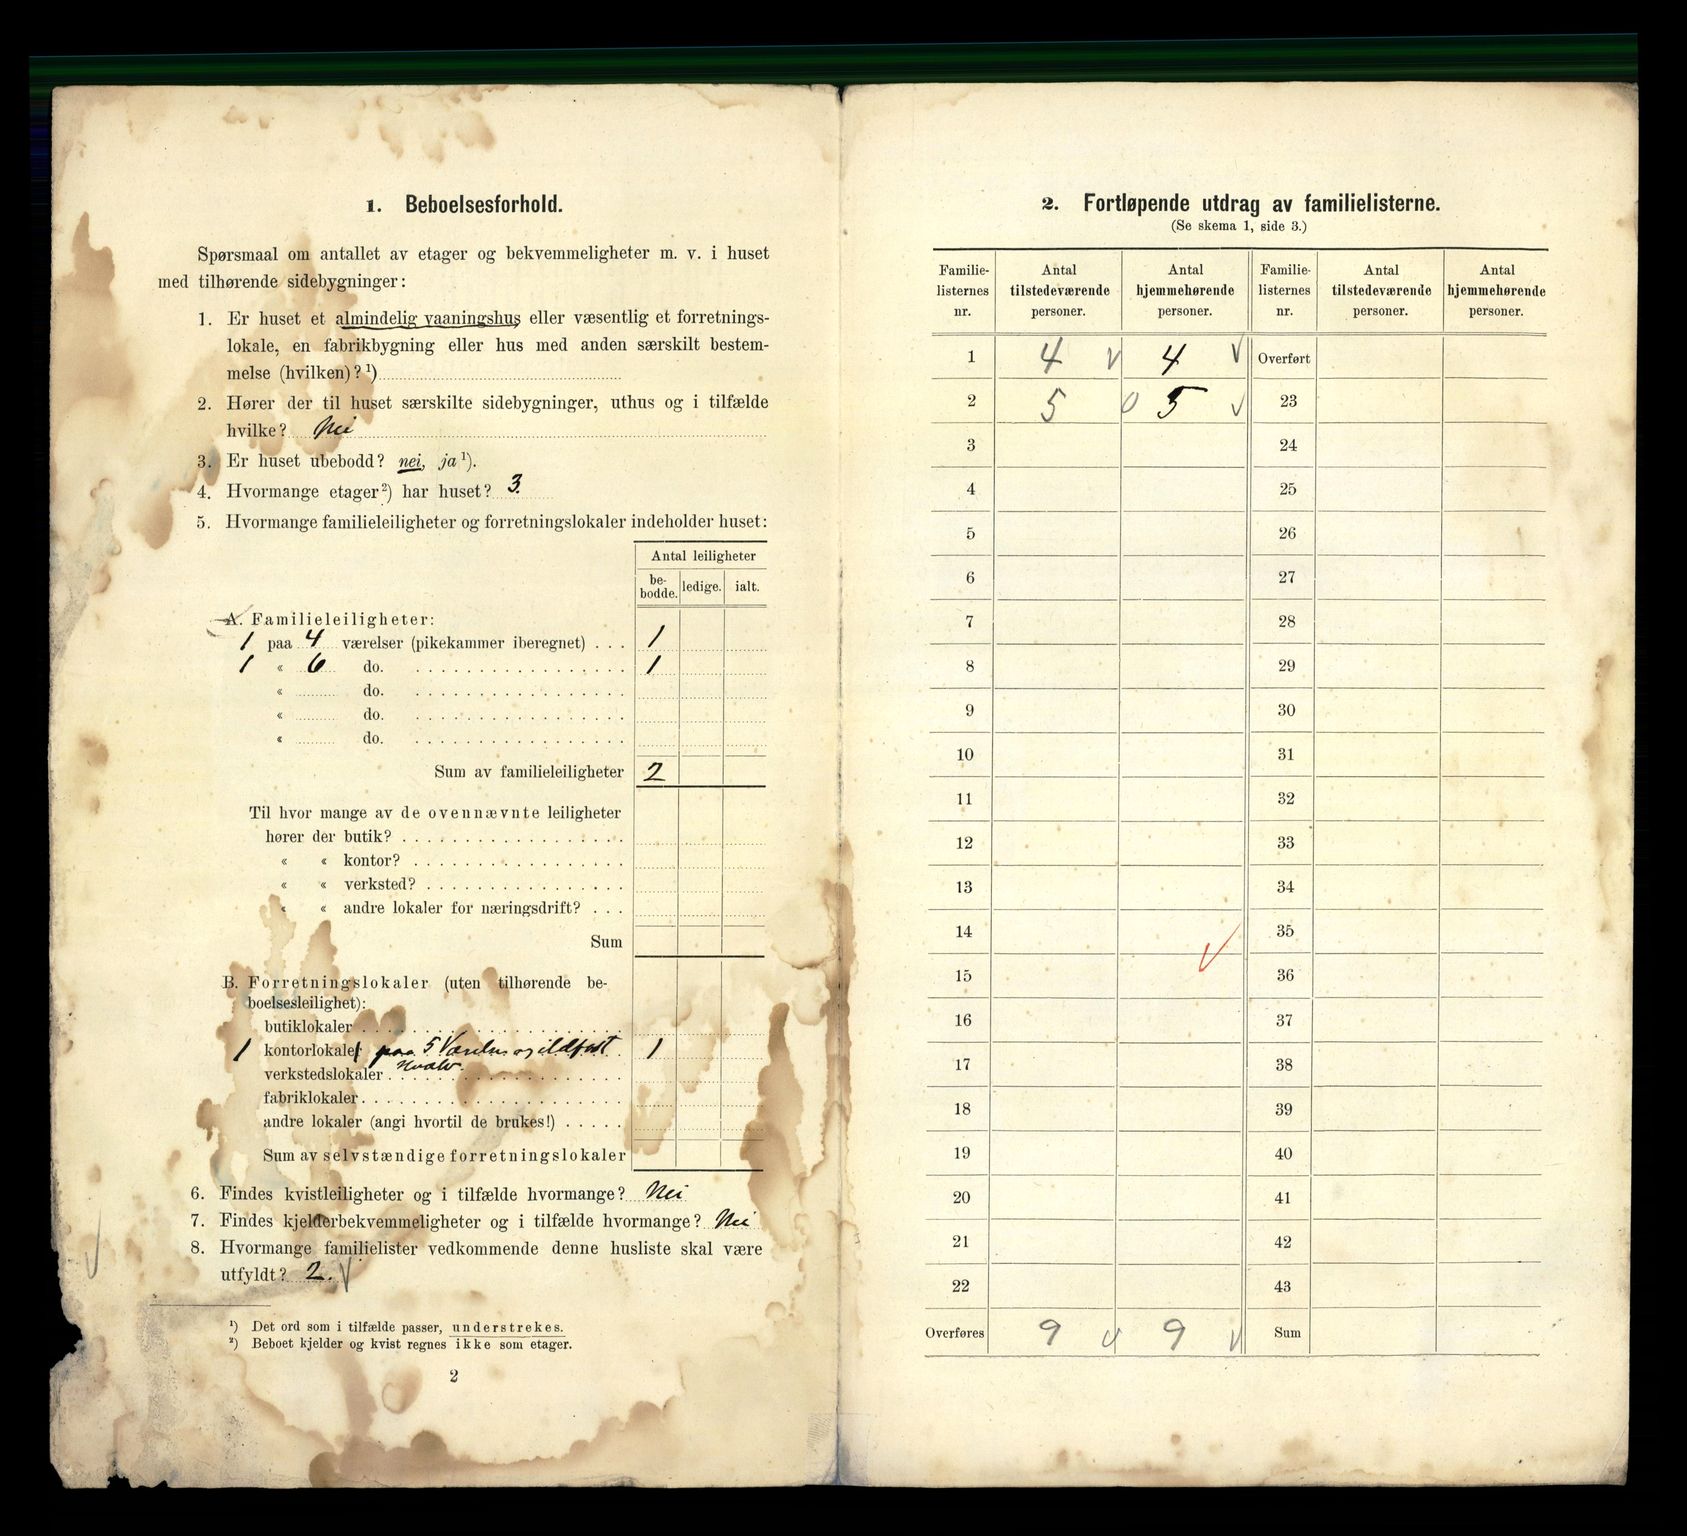 1. Beboelsesforhold.
Spørsmaal om antallet av etager og bekvemmeligheter m. v. i huset
med tilhørende sidebygninger:
1. Er huset et almindelig vaaningshus eller væsentlig et forretnings-
lokale, en fabrikbygning eller hus med anden særskilt bestem-
melse (hvilken)? ¹)
2. Hører der til huset særskilte sidebygninger, uthus og i tilfælde
hvilke? Nei
3. Er huset ubebodd? nei, ja ¹).
4. Hvormange etager ²) har huset? 3.
5. Hvormange familieleiligheter og forretningslokaler indeholder huset:
Antal leiligheter
be-
bodde. ledige. ialt.
A. Familieleiligheter:
1 paa 4 værelser (pikekammer iberegnet) . . . 1
1 « 6 do. 1
« do.
« do.
« do.
Sum av familieleiligheter 2
Til hvor mange av de ovennævnte leiligheter
hører der butik?
« « kontor?
« « verksted?
« « andre lokaler for næringsdrift? . . .
Sum
B. Forretningslokaler (uten tilhørende be-
boelsesleilighet):
butiklokaler
1 kontorlokaler paa 5 Værelser og ildfast 1
Hvælv.
verkstedslokaler
fabriklokaler
andre lokaler (angi hvortil de brukes!)
Sum av selvstændige forretningslokaler
6. Findes kvistleiligheter og i tilfælde hvormange? Nei
7. Findes kjelderbekvemmeligheter og i tilfælde hvormange? Nei
8. Hvormange familielister vedkommende denne husliste skal være
utfyldt? 2. V
¹) Det ord som i tilfælde passer, understrekes.
²) Beboet kjelder og kvist regnes ikke som etager.
2
2. Fortløpende utdrag av familielisterne.
(Se skema 1, side 3.)
Familie- Antal Antal Familie- Antal Antal
listernes tilstedeværende hjemmehørende listernes tilstedeværende hjemmehørende
nr. personer. personer. nr. personer. personer.
1 4 V 4 V Overført
2 5 0 5 V 23
3 24
4 25
5 26
6 27
7 28
8 29
9 30
10 31
11 32
12 33
13 34
14 35
15 36
16 37
17 38
18 39
19 40
20 41
21 42
22 43
Overføres 9 V 9 V Sum